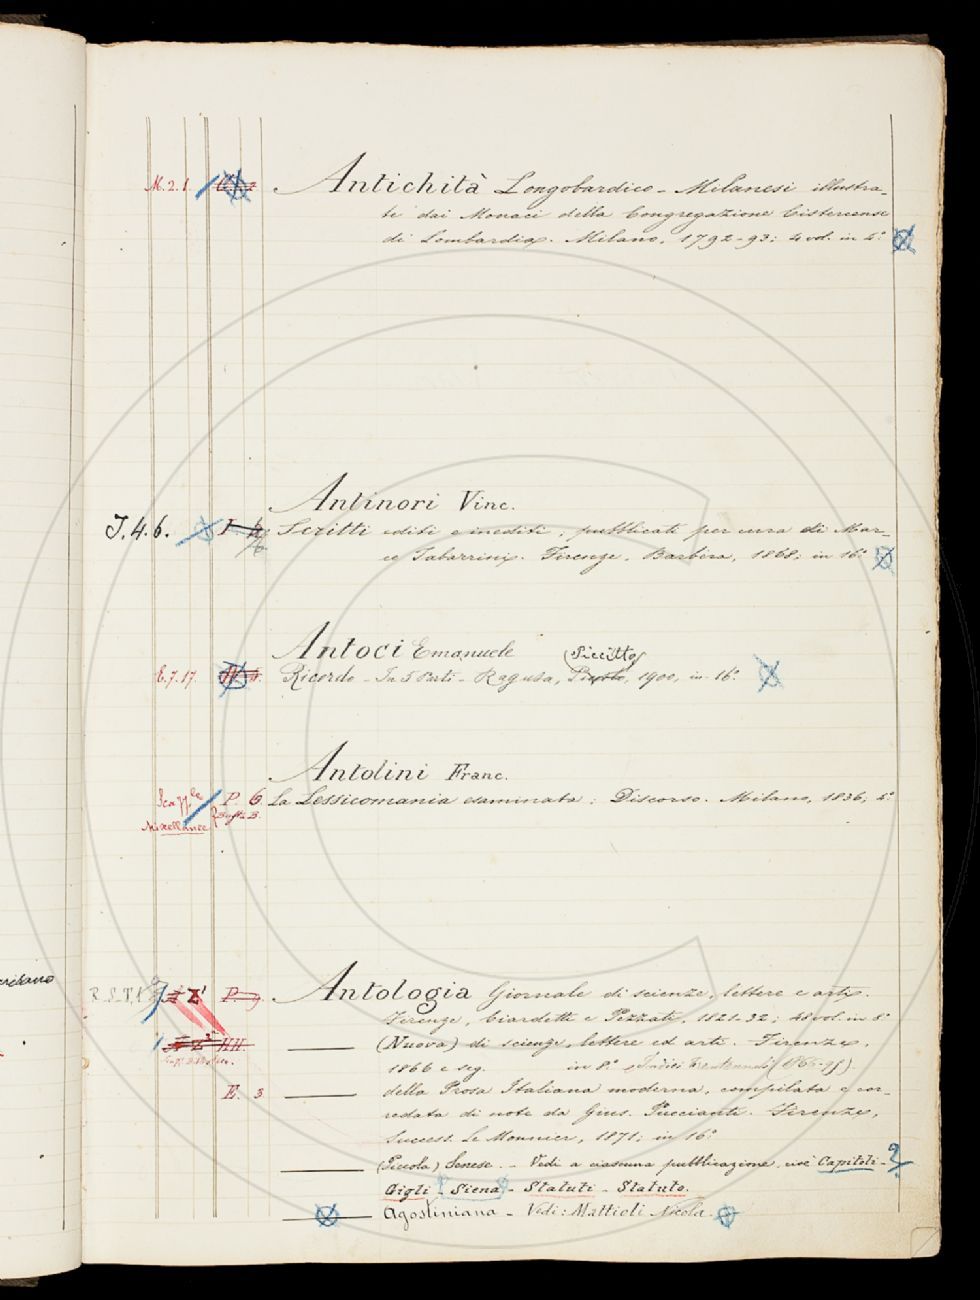 M. 2. 1. Antichità Longobardico-Milanesi illustra-
te dai Monaci della Congregazione Cistercense
di Lombardia. Milano, 1792-93; 4 vol. in 4.°
Antinori Vinc.
I. 4. 6. Scritti editi e inediti, pubblicati per cura di Mar-
co Tabarrini. Firenze, Barbèra, 1868; in 16.°
Antoci Emanuele (Piccitto)
E. 7. 17. Ricordo - In 5 Parti - Ragusa, 1900, in-16.°
Antolini Franc.
P. 6. La Lessicomania esaminata: Discorso. Milano, 1836, 4.°
Miscellanee Busta B.
R. S. T. 1 Z' P. Antologia Giornale di scienze, lettere e arti.
Firenze, Ciardetti e Pezzati, 1821-32; 48 vol. in 8.°
HH. (Nuova) di scienze, lettere ed arti. Firenze,
1866 e seg. in 8.° e Indici Trentennali (1866-95).
E. 3 della Prosa Italiana moderna, compilata e cor-
redata di note da Gius. Puccianti. Firenze,
Success. Le Monnier, 1871; in 16.°
(Piccola) Senese. - Vedi a ciascuna pubblicazione, cioè Capitoli - ?
Gigli - Siena - Statuti - Statuto.
Agostiniana - Vedi: Mattioli Nicola.